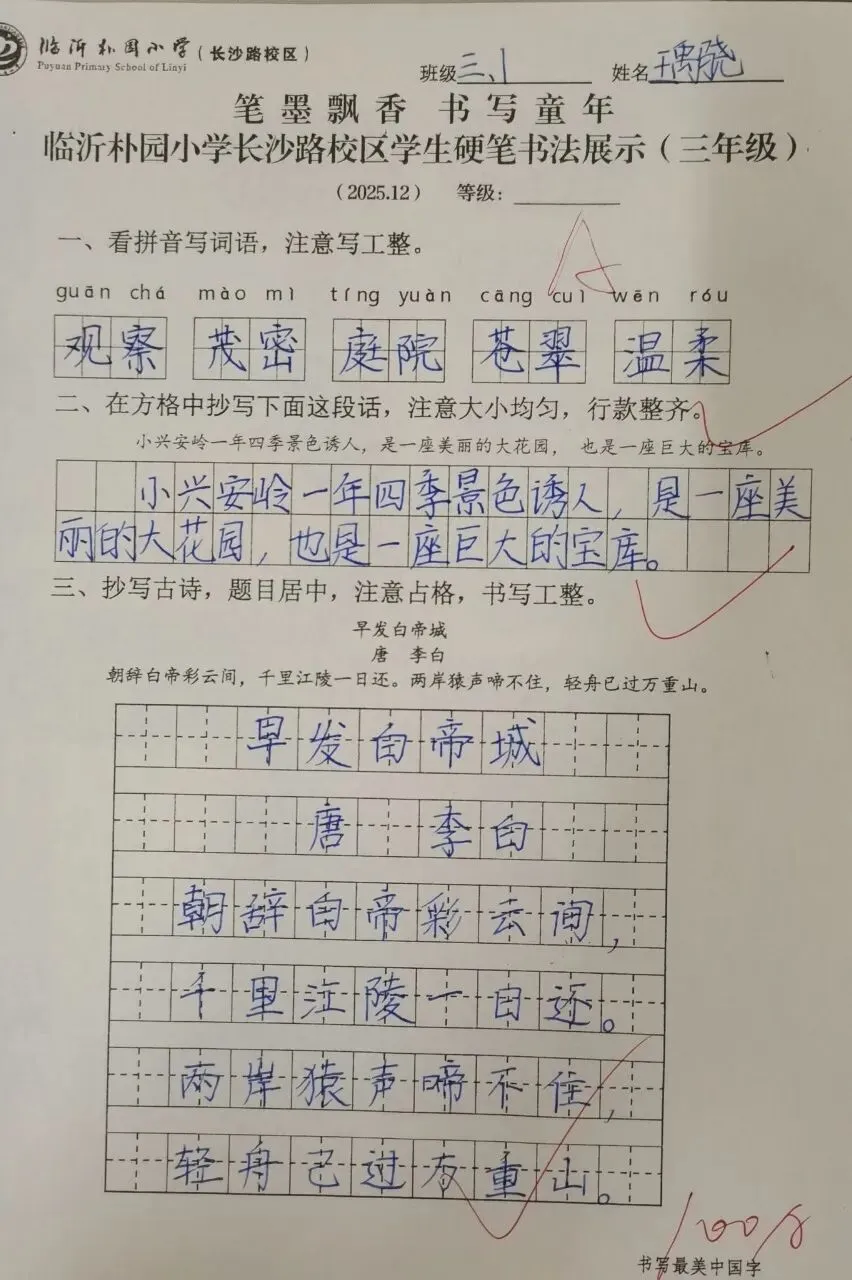 临沂朴园小学（长沙路校区）
Puyuan Primary School of Linyi
班级三、1 姓名
笔墨飘香 书写童年
临沂朴园小学长沙路校区学生硬笔书法展示（三年级）
（2025.12） 等级：
A
一、看拼音写词语，注意写工整。
guān chá mào mì tíng yuàn cāng cuì wēn róu
观察 茂密 庭院 苍翠 温柔
二、在方格中抄写下面这段话，注意大小均匀，行款整齐。
小兴安岭一年四季景色诱人，是一座美丽的大花园， 也是一座巨大的宝库。
小兴安岭一年四季景色诱人，是一座美
丽的大花园，也是一座巨大的宝库。
三、抄写古诗，题目居中，注意占格，书写工整。
早发白帝城
唐 李白
朝辞白帝彩云间，千里江陵一日还。两岸猿声啼不住，轻舟已过万重山。
早发白帝城
唐 李白
朝辞白帝彩云间，
千里江陵一日还。
两岸猿声啼不住，
轻舟已过万重山。
100分
书写最美中国字